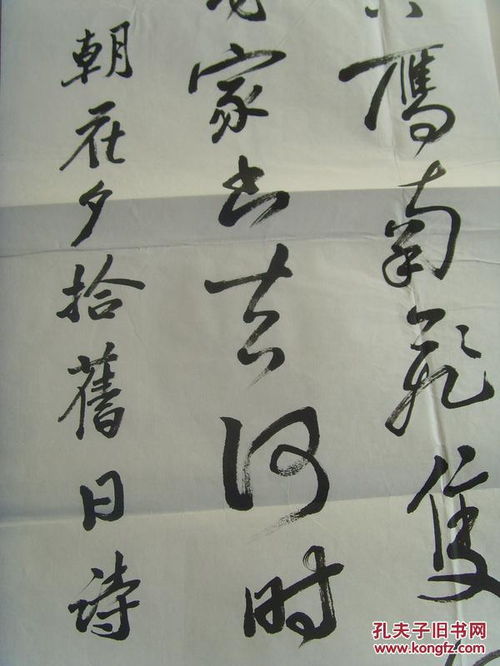 雁南飛隻
家出去何时
朝花夕拾舊日诗
孔夫子旧书网
www.kongfz.com